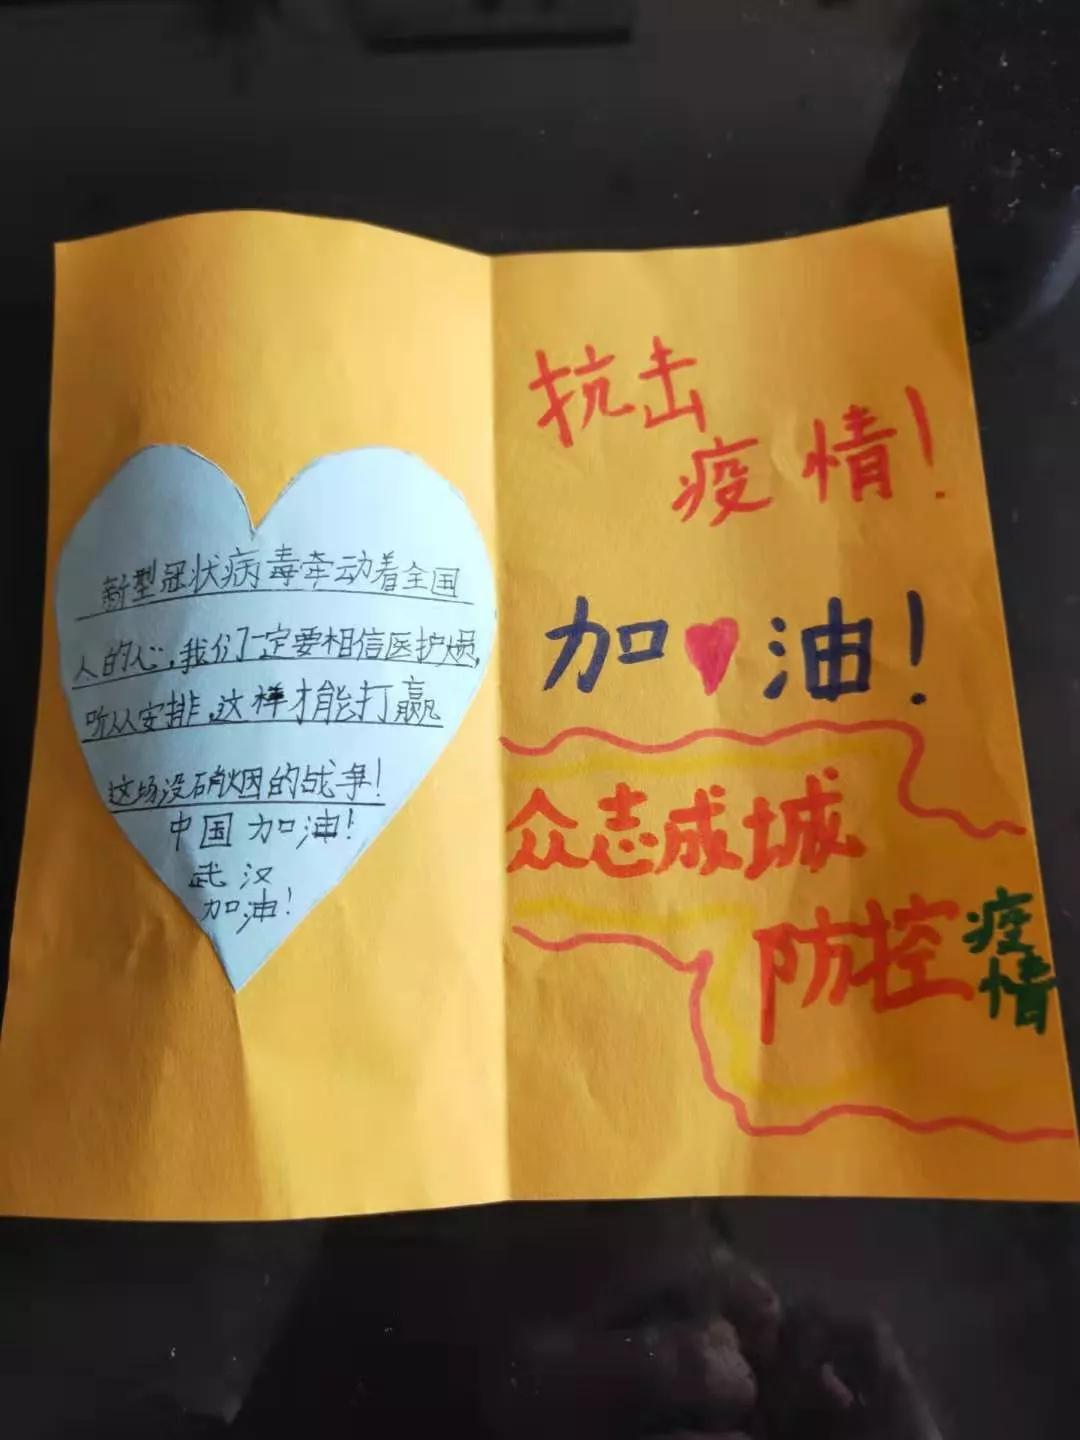 新型冠状病毒牵动着全国
人的心,我们一定要相信医护员,
听从安排,这样才能打赢
这场没硝烟的战争!
中国加油!
武汉
加油!
抗击
疫情!
加油!
众志成城
防控疫情